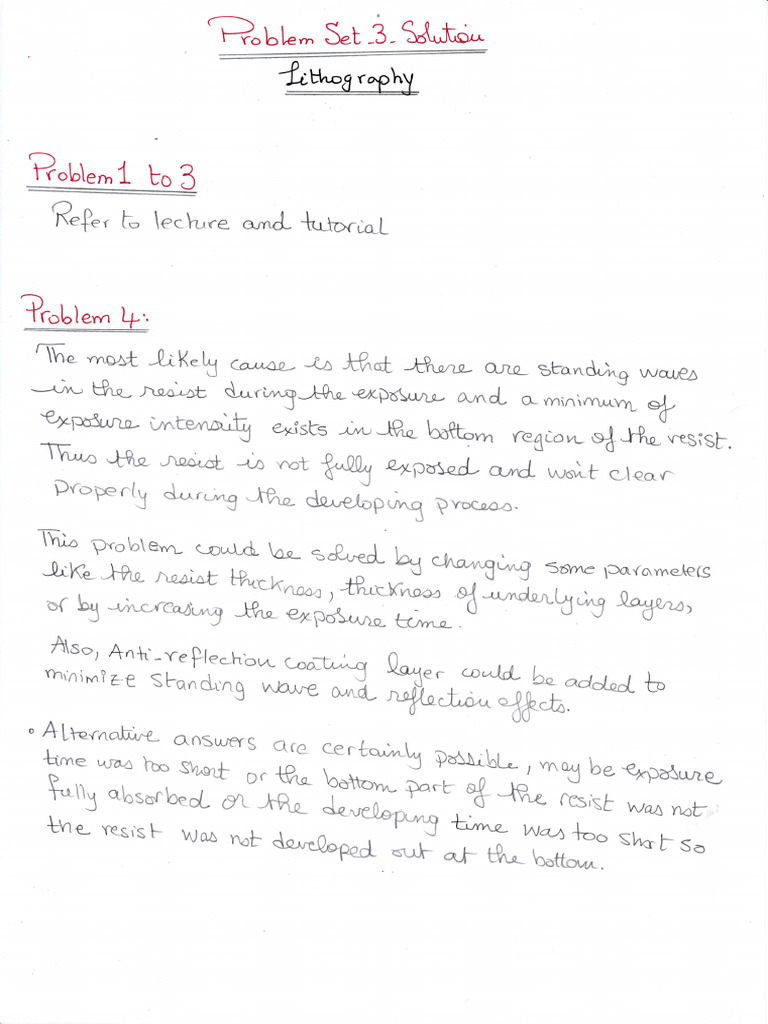 Problem Set -3- Solution
Lithography
Problem 1 to 3
Refer to lecture and tutorial
Problem 4:
The most likely cause is that there are standing waves
in the resist during the exposure and a minimum of
exposure intensity exists in the bottom region of the resist.
Thus the resist is not fully exposed and won't clear
properly during the developing process.
This problem could be solved by changing some parameters
like the resist thickness, thickness of underlying layers,
or by increasing the exposure time.
Also, Anti-reflection coating layer could be added to
minimize standing wave and reflection effects.
• Alternative answers are certainly possible, may be exposure
time was too short or the bottom part of the resist was not
fully absorbed or the developing time was too short so
the resist was not developed out at the bottom.